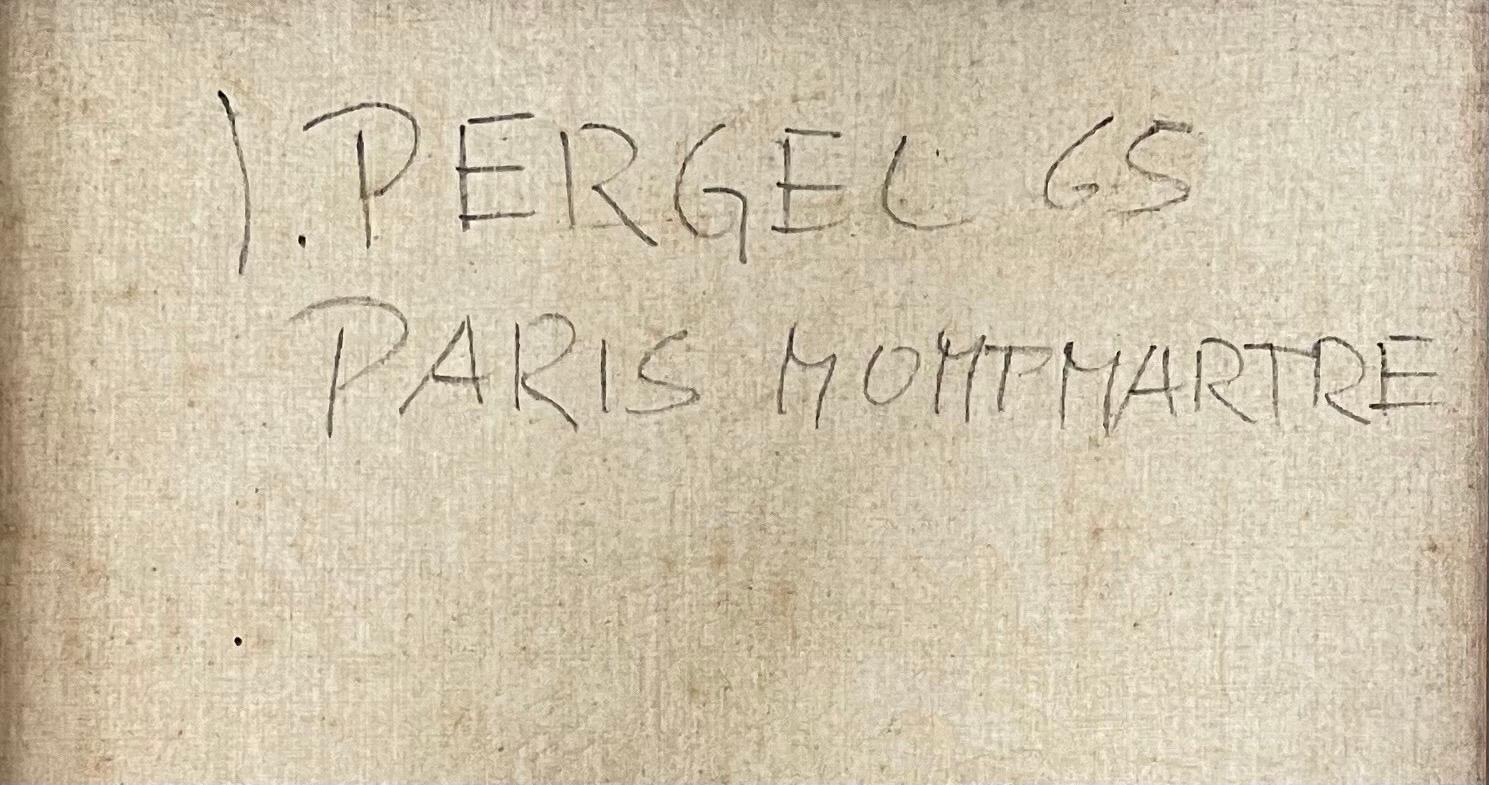 I. PERGEL 65
PARIS MOMTPMARTRE